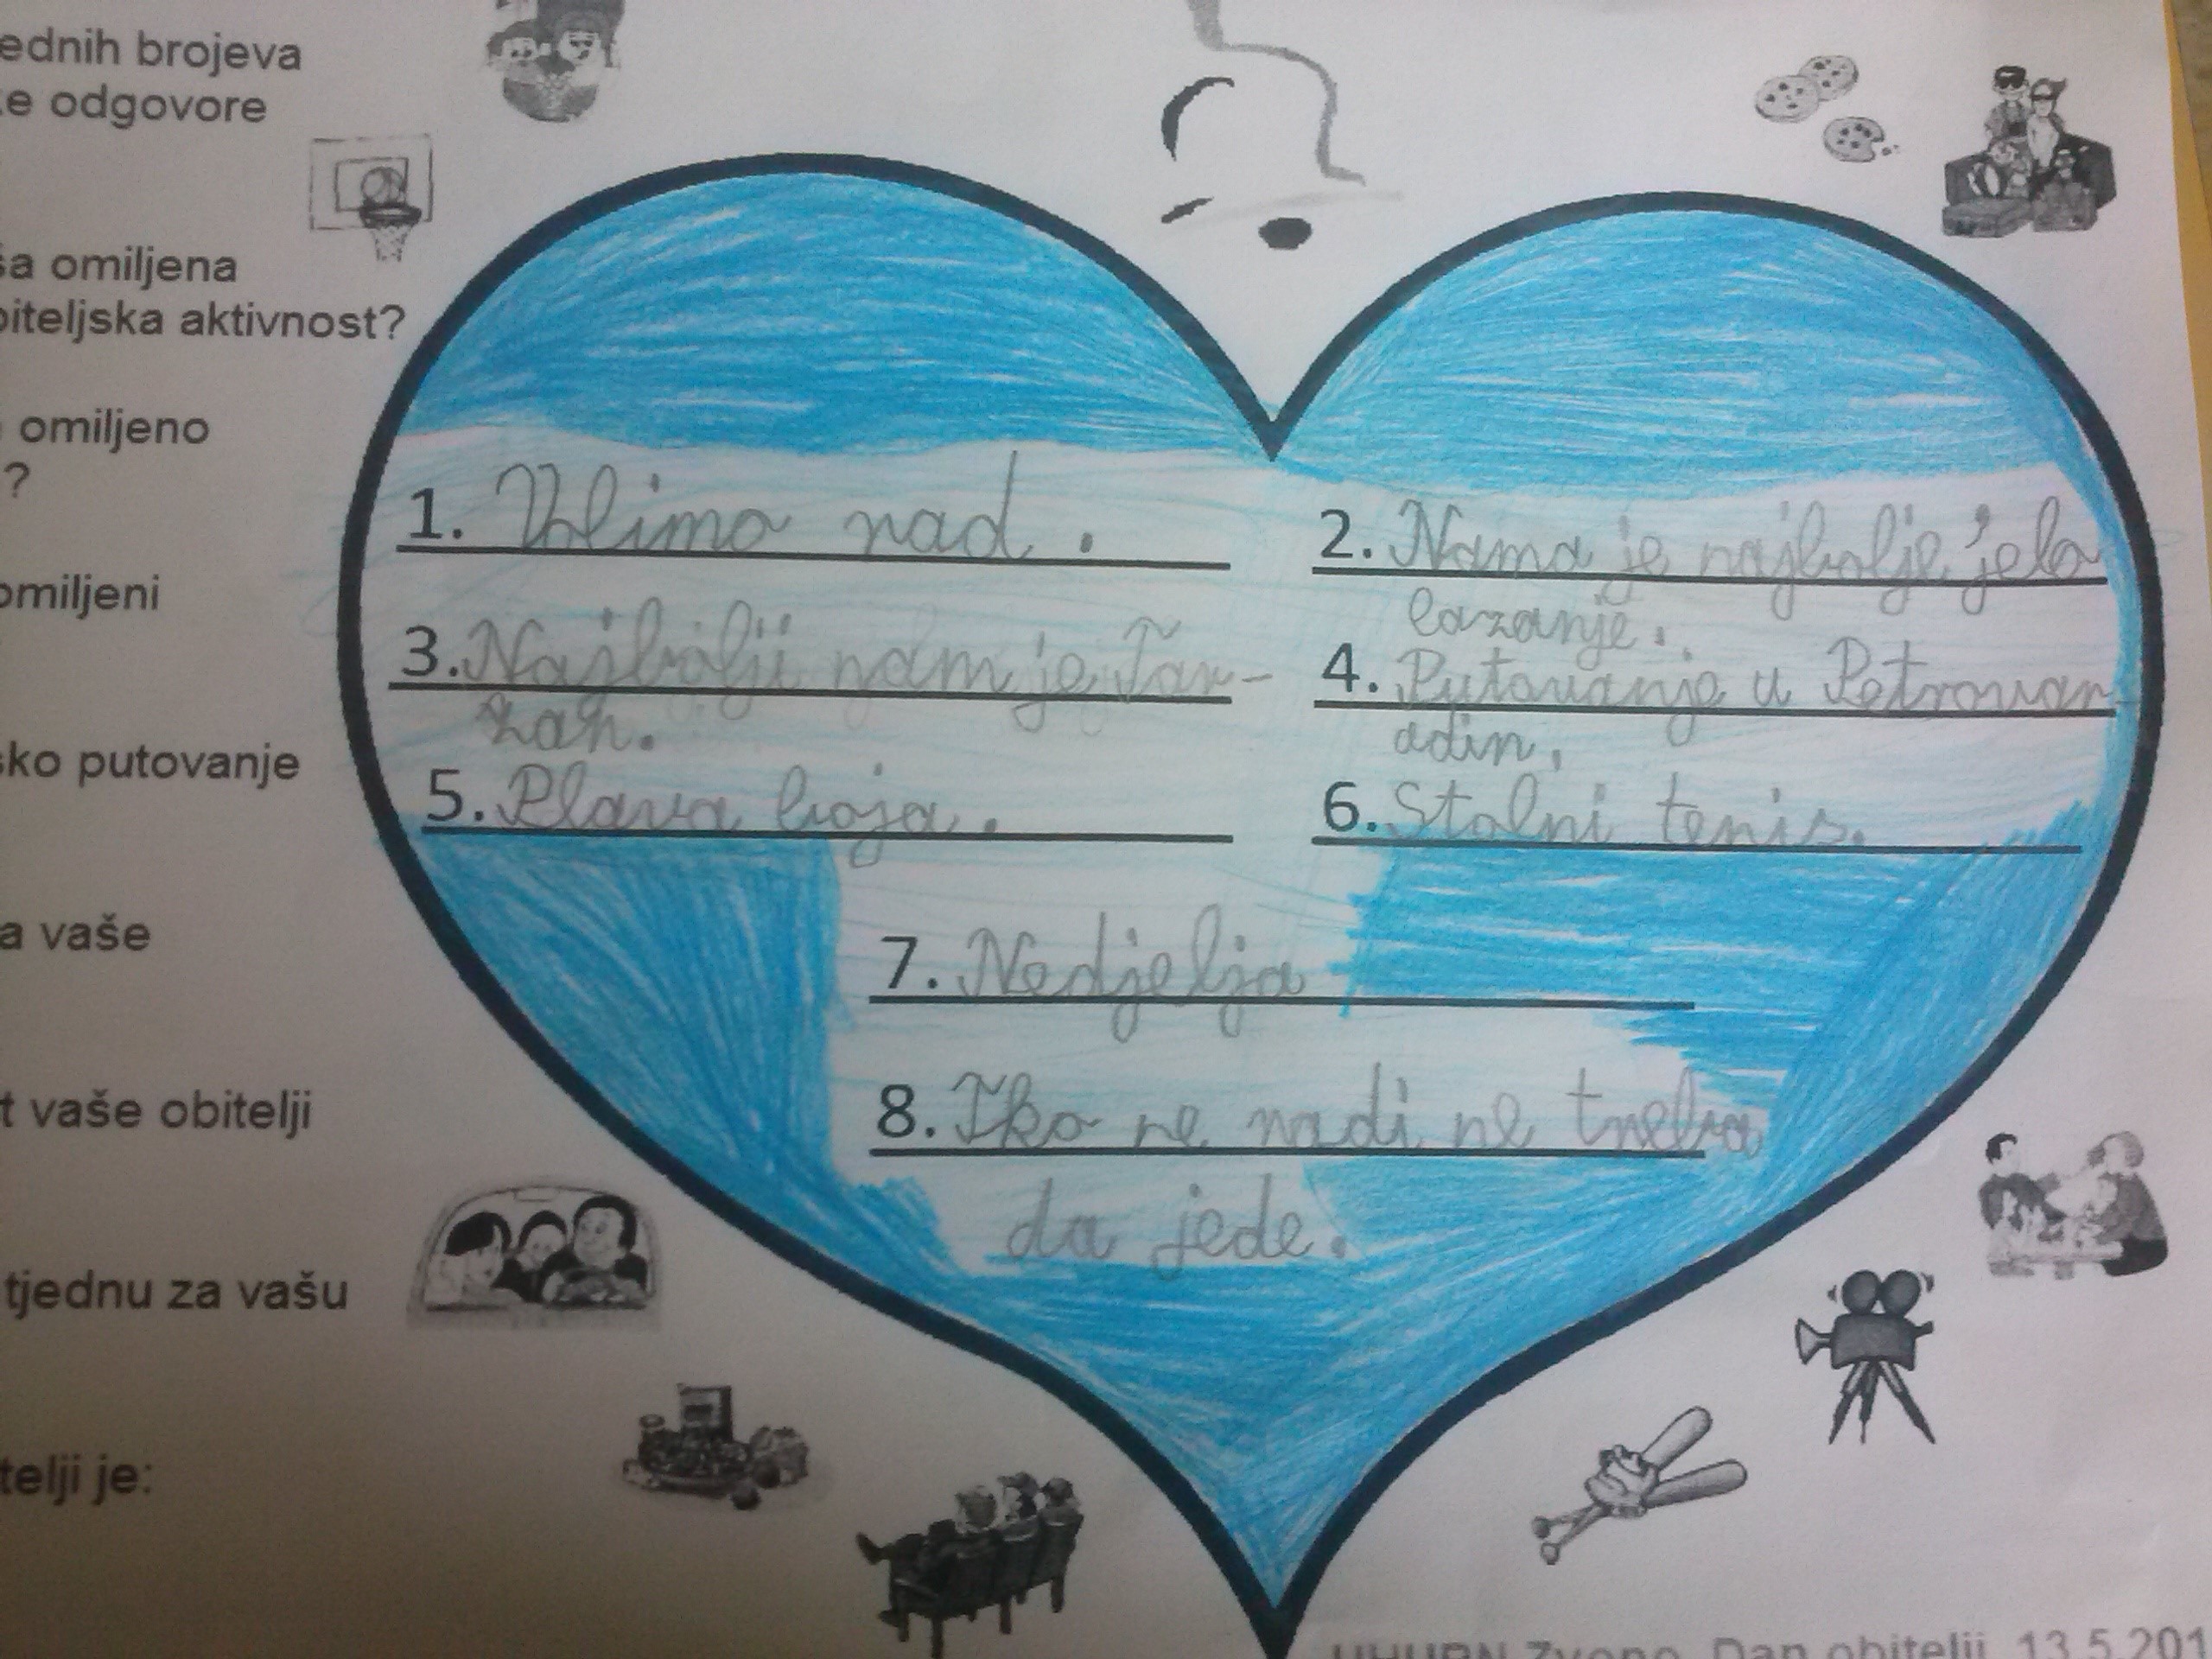 ednih brojeva
e odgovore
ša omiljena
biteljska aktivnost?
omiljeno
?
omiljeni
sko putovanje
a vaše
t vaše obitelji
tjednu za vašu
telji je:
1. Volimo rad.
2. Nama je najbolje jelo
lazanje.
3. Najbolji nam je Tar-
zan.
4. Putovanje u Petrovar
adin.
5. Plava boja.
6. Stolni tenis.
7. Nedjelja
8. Tko ne radi ne treba
da jede.
Zvono, Dan obitelji, 13.5.201